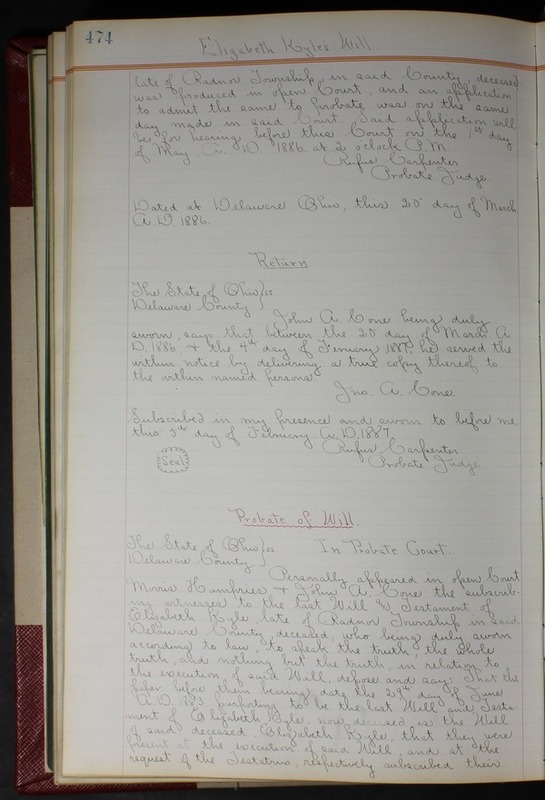 474
Elizabeth Kyle's Will.
late of Radnor Township, in said County, deceased
was produced in open Court, and an application
to admit the same to probate was on the same
day made in said Court. Said application will
be for hearing before this Court on the 1st day
of May A. D. 1886 at 2 o'clock P.M.
Rufus Carpenter
Probate Judge
Dated at Delaware Ohio, this 25 day of March
A.D. 1886.
Return
The State of Ohio } ss
Delaware County }
John A. Cone being duly
sworn, says that between the 25 day of March A.
D. 1886 + the 4th day of February 1887, he served the
within notice by delivering a true copy thereof to
the within named persons.
Jno. A. Cone
Subscribed in my presence and sworn to before me
this 5th day of February A.D. 1887
Rufus Carpenter
Probate Judge
Seal
Probate of Will.
The State of Ohio } ss In Probate Court.
Delaware County }
Personally appeared in open Court
Morris Humpries + John A. Cone the subscrib-
ing witnesses to the last Will and Testament of
Elizabeth Kyle late of Radnor Township in said
Delaware County, deceased, who being duly sworn
according to law, to speak the truth, the whole
truth, and nothing but the truth, in relation to
the execution of said Will, depose and say: That the
paper before them bearing date the 29th day of June
A.D. 1883 purporting to be the last Will and Testa-
ment of Elizabeth Kyle, now deceased is the Will
of said deceased, Elizabeth Kyle, that they were
present at the execution of said Will, and at the
request of the Testatrix, respectively subscribed their